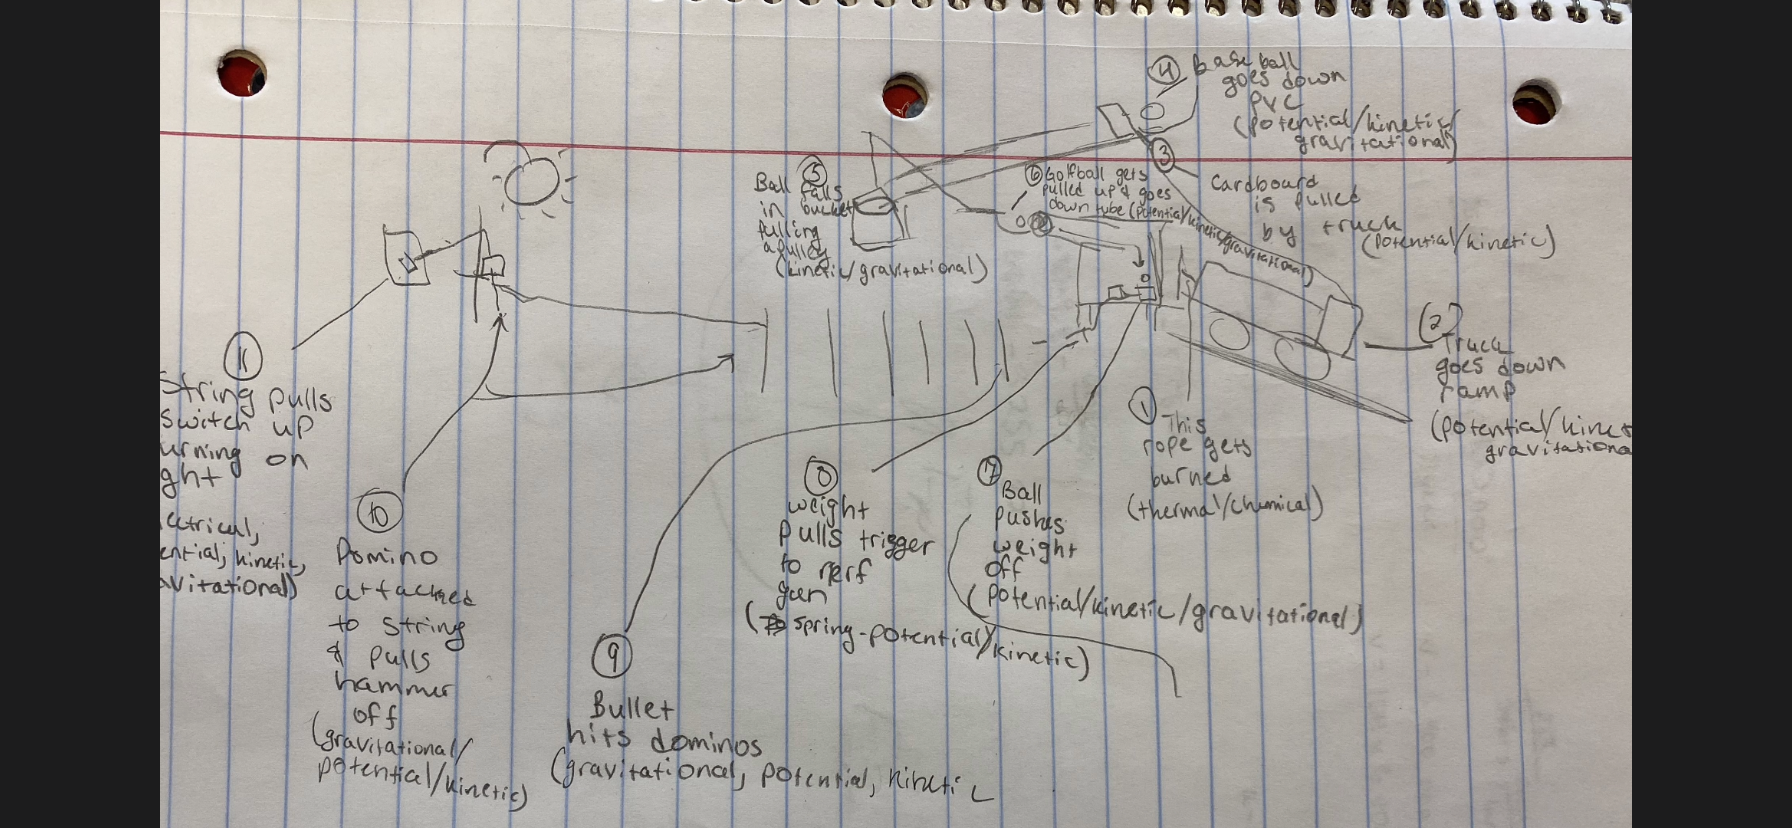 ④ Baseball
goes down
PVC
(potential/kinetic/
gravitational)
③
Cardboard
is pulled
by truck
(potential/kinetic)
⑤
Ball falls
in bucket
pulling
a pulley
(kinetic/gravitational)
⑥ Golfball gets
pulled up & goes
down tube (potential/kinetic/gravitational)
(2)
Truck
goes down
ramp
(potential/kinet
gravitationa
① This
rope gets
burned
(thermal/chemical)
⑦
Ball
pushes
weight
off
(potential/kinetic/gravitational)
⑧
weight
pulls trigger
to nerf
gun
(spring-potential/kinetic)
⑨
Bullet
hits dominos
(gravitational, potential, kinetic
⑩
Domino
attached
to string
& pulls
hammer
off
(gravitational/
potential/kinetic)
⑪
String pulls
switch up
urning on
ght
ectrical,
ential, kinetic,
avitational)